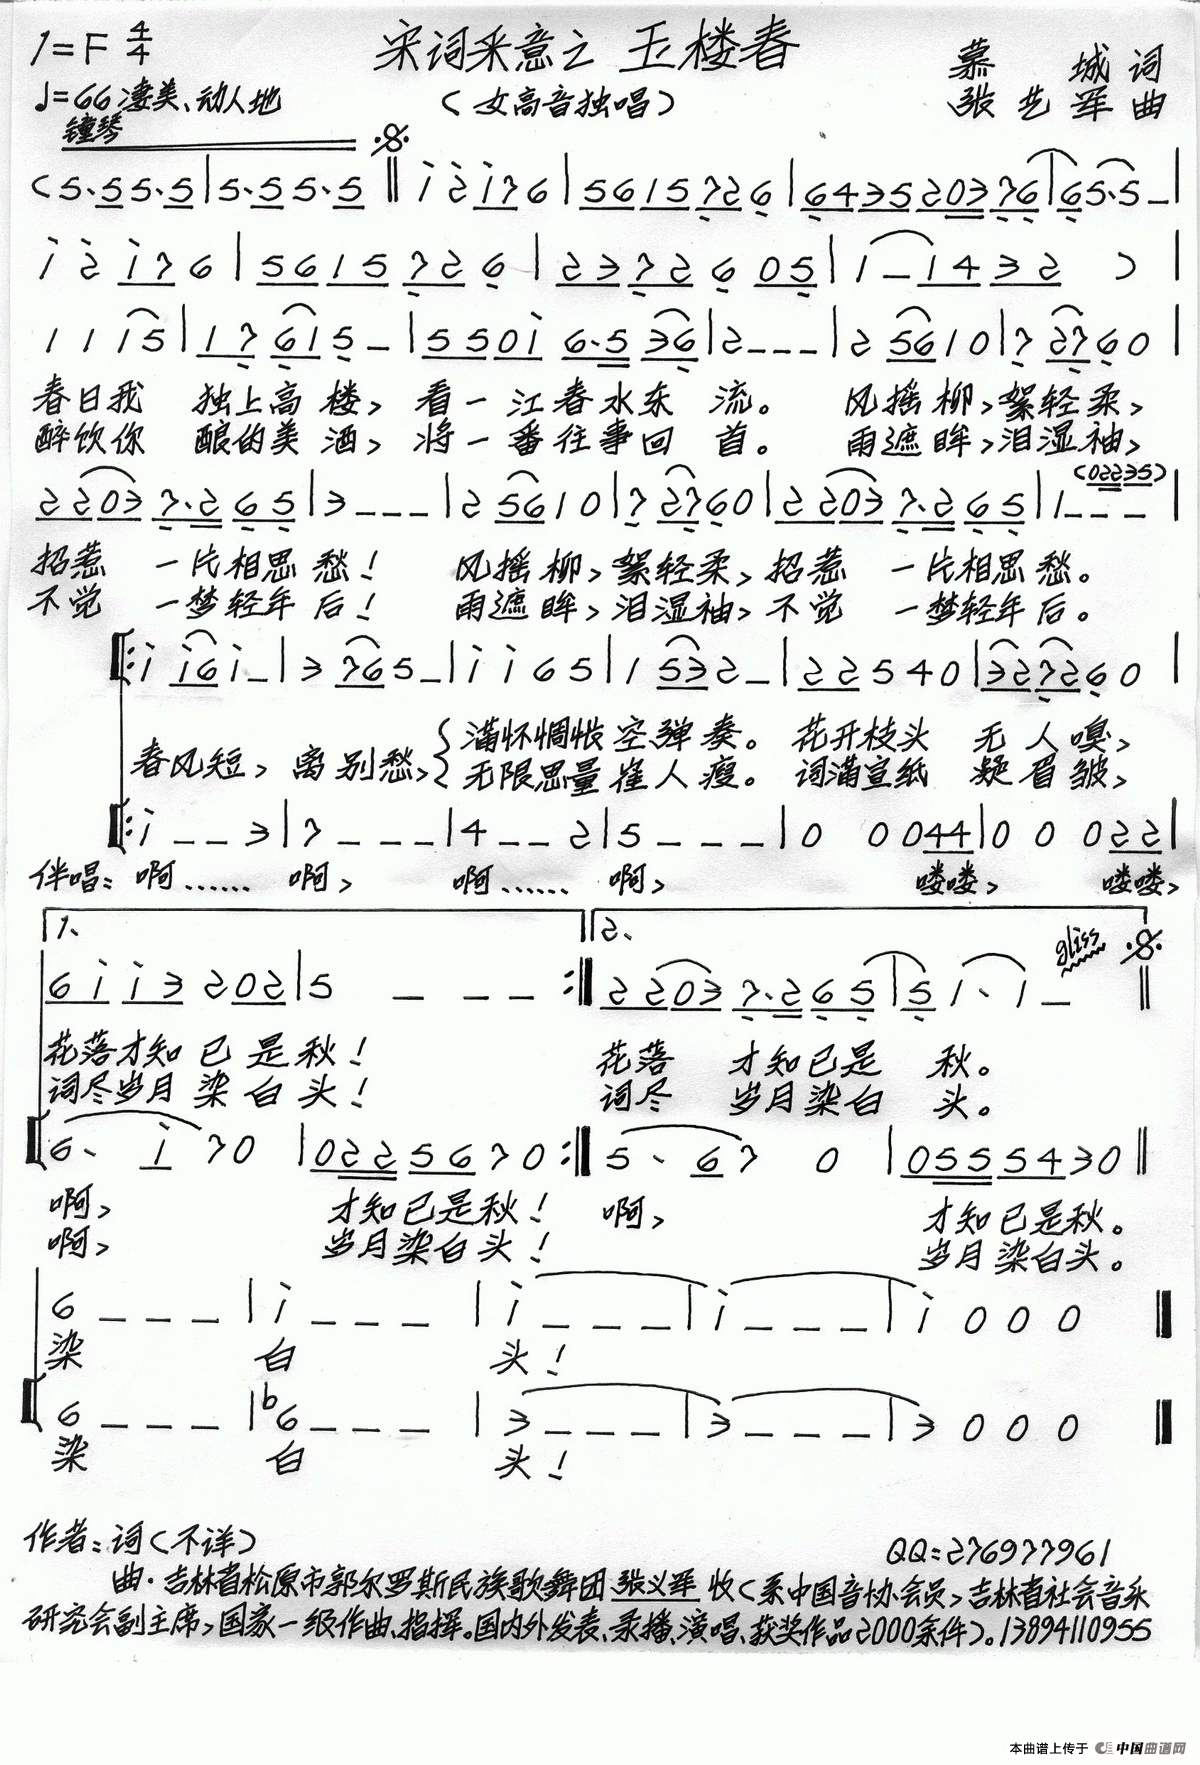 1=F 4/4
宋词采意之 玉楼春
慕 城 词
♩=66 凄美、动人地
(女高音独唱)
张艺军 曲
钟琴
(5·55·5|5·55·5‖i 2 i76|5615726|643520376|65·5–|
i 2 i76|5615726|2372605|1–1432 )|
1 1 15|17615–|5501 6·536|2–––|25610|72760|
春日我 独上高楼, 看一江春水东流。 风摇柳,絮轻柔,
醉饮你 酿的美酒, 将一番往事回首。 雨遮眸,泪湿袖,
2203 7·265|3–––|25610|72760|2203 7·265|1–––|
(02235)
招惹 一片相思愁! 风摇柳,絮轻柔,招惹 一片相思愁。
不觉 一梦轻年后! 雨遮眸,泪湿袖,不觉 一梦轻年后。
‖:i i6i–|3765–|i i65|1532–|222540|327260|
满怀惆怅空弹奏。 花开枝头 无人嗅,
春风短, 离别愁,
无限思量崔人瘦。 词满宣纸 凝眉皱,
‖:i––3|7–––|4––2|5–––|0 0044|0 0 022|
伴唱: 啊…… 啊, 啊…… 啊, 喽喽, 喽喽,
1、
2、
gliss
6ii3 202|5 – – –:‖2203 7·265|51·1–‖
花落才知已是秋! 花落 才知已是 秋。
词尽岁月染白头! 词尽 岁月染白 头。
6· i70|0225670:‖5·67 0|0555430‖
啊, 才知已是秋! 啊, 才知已是秋。
啊, 岁月染白头! 岁月染白头。
6–––|i–––|i–––|i–––|i 0 0 0‖
染 白 头!
6–––|♭6–––|3–––|3–––|3 0 0 0‖
染 白 头!
作者:词(不详)
QQ=276977961
曲·吉林省松原市郭尔罗斯民族歌舞团 张义军 收(系中国音协会员,吉林省社会音乐
研究会副主席,国家一级作曲、指挥。国内外发表、录播、演唱、获奖作品2000余件)。13894110955
本曲谱上传于 中国曲谱网